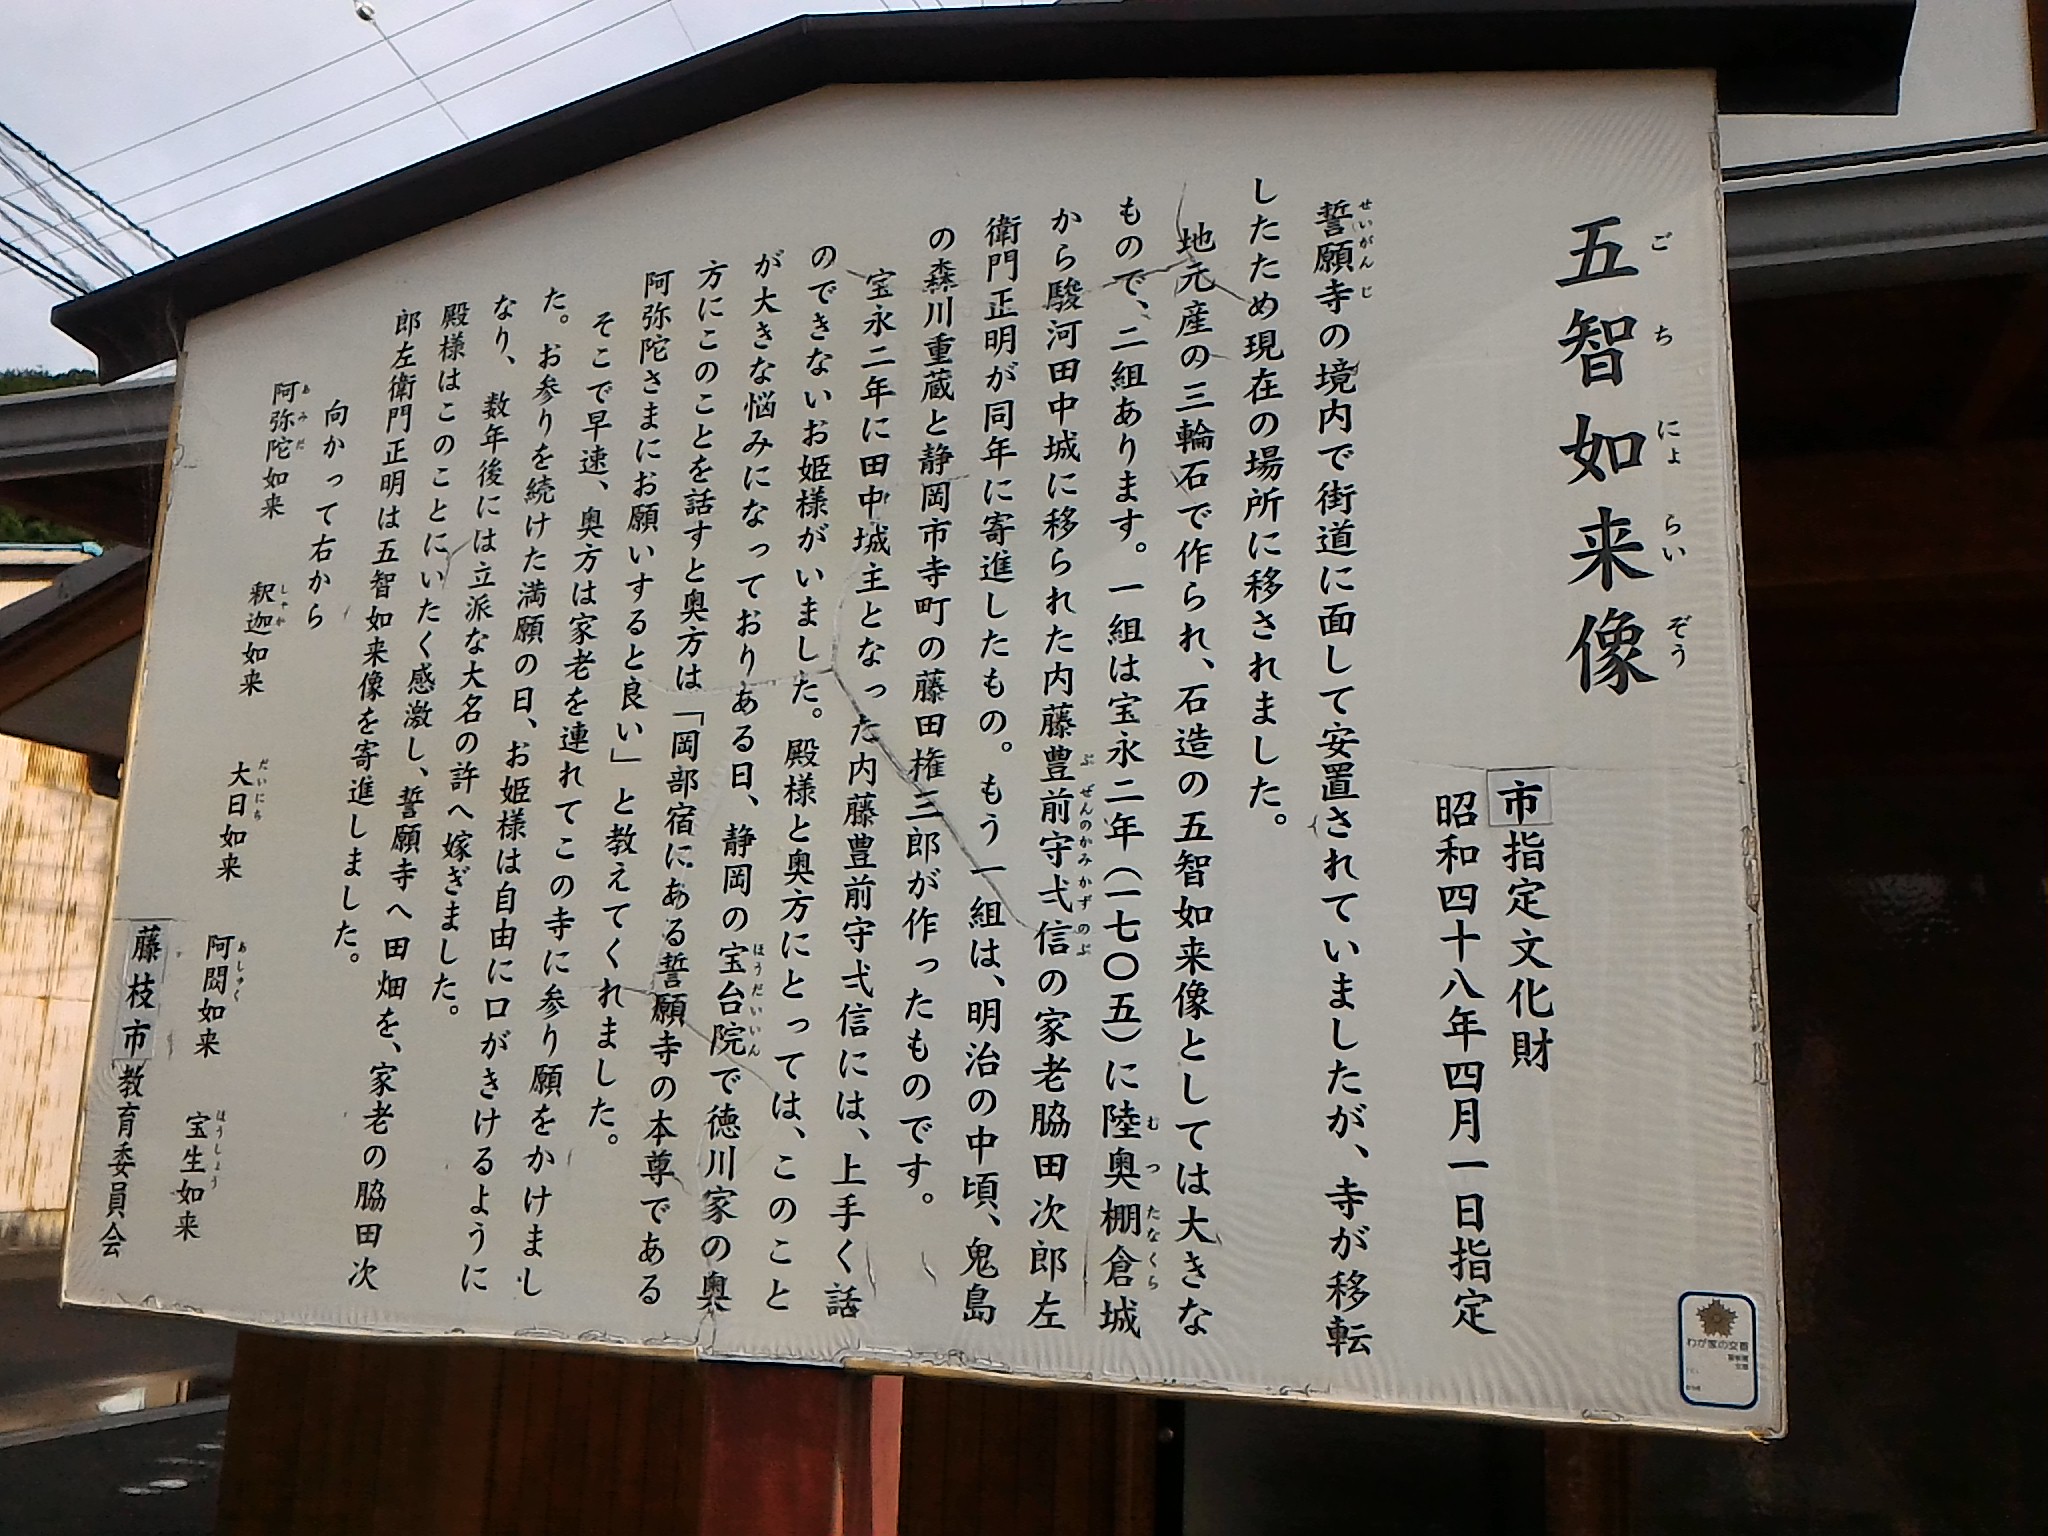 五智如来像
ごちにょらいぞう
市指定文化財
昭和四十八年四月一日指定
誓願寺の境内で街道に面して安置されていましたが、寺が移転
せいがんじ
したため現在の場所に移されました。
地元産の三輪石で作られ、石造の五智如来像としては大きな
もので、二組あります。一組は宝永二年（一七〇五）に陸奥棚倉城
むつたなくら
から駿河田中城に移られた内藤豊前守弌信の家老脇田次郎左
ぶぜんのかみかずのぶ
衛門正明が同年に寄進したもの。もう一組は、明治の中頃、鬼島
の森川重蔵と静岡市寺町の藤田権三郎が作ったものです。
宝永二年に田中城主となった内藤豊前守弌信には、上手く話
のできないお姫様がいました。殿様と奥方にとっては、このこと
が大きな悩みになっておりある日、静岡の宝台院で徳川家の奥
ほうだいいん
方にこのことを話すと奥方は「岡部宿にある誓願寺の本尊である
阿弥陀さまにお願いすると良い」と教えてくれました。
そこで早速、奥方は家老を連れてこの寺に参り願をかけまし
た。お参りを続けた満願の日、お姫様は自由に口がきけるように
なり、数年後には立派な大名の許へ嫁ぎました。
殿様はこのことにいたく感激し、誓願寺へ田畑を、家老の脇田次
郎左衛門正明は五智如来像を寄進しました。
向かって右から
阿弥陀如来 釈迦如来 大日如来 阿閦如来 宝生如来
あみだ しゃか だいにち あしゅく ほうしょう
藤枝市教育委員会
わが家の交番